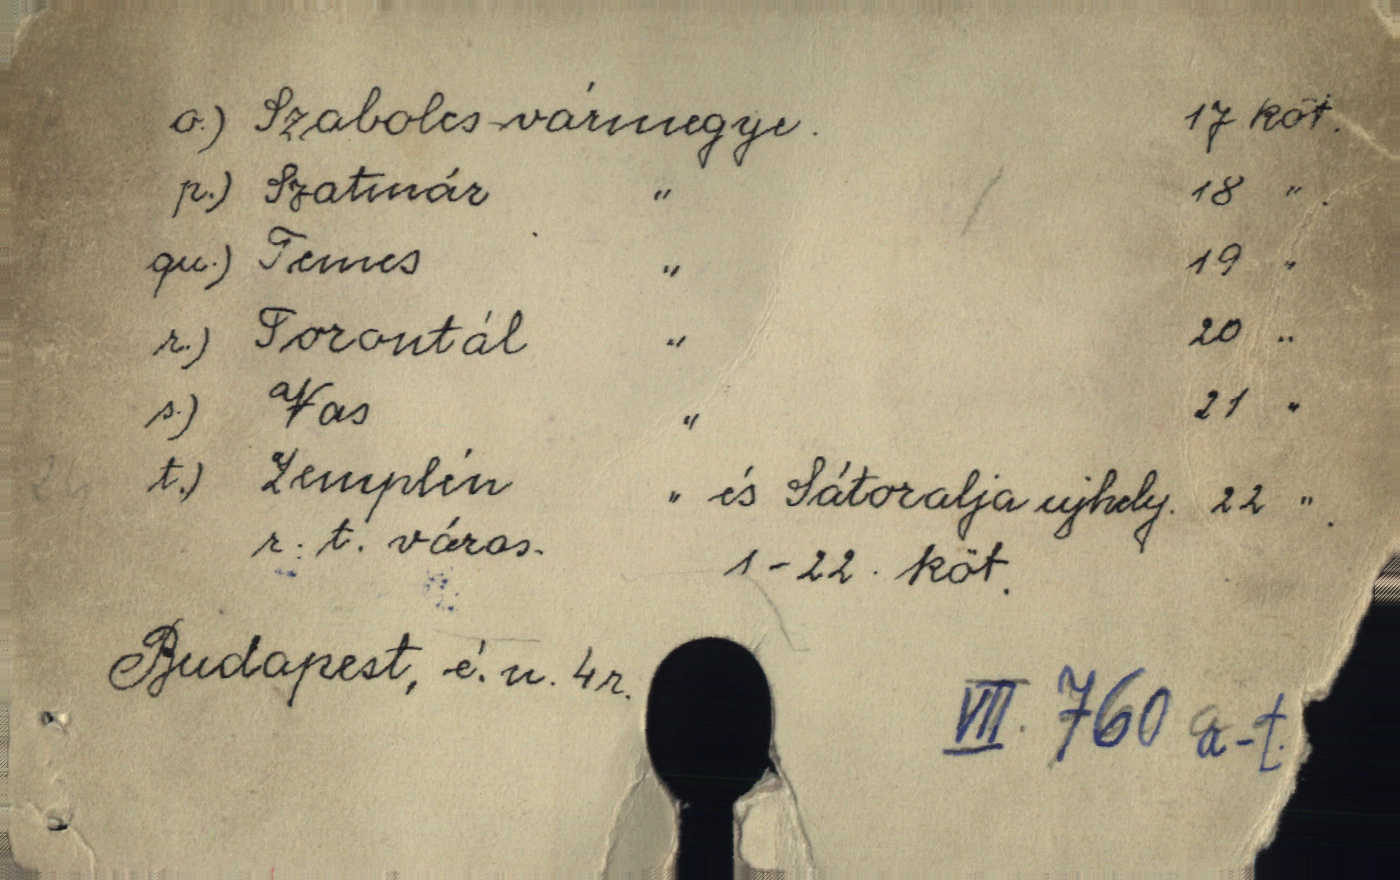 o.) Szabolcs-vármegye. 17 köt.
p.) Szatmár " 18 ".
qu.) Temes " 19 "
r.) Torontál " 20 "
s.) Vas " 21 "
t.) Zemplén " és Sátoralja ujhely. 22 ".
r. t. város. 1-22. köt.
Budapest, é. n. 4r.
VII. 760 a-t.